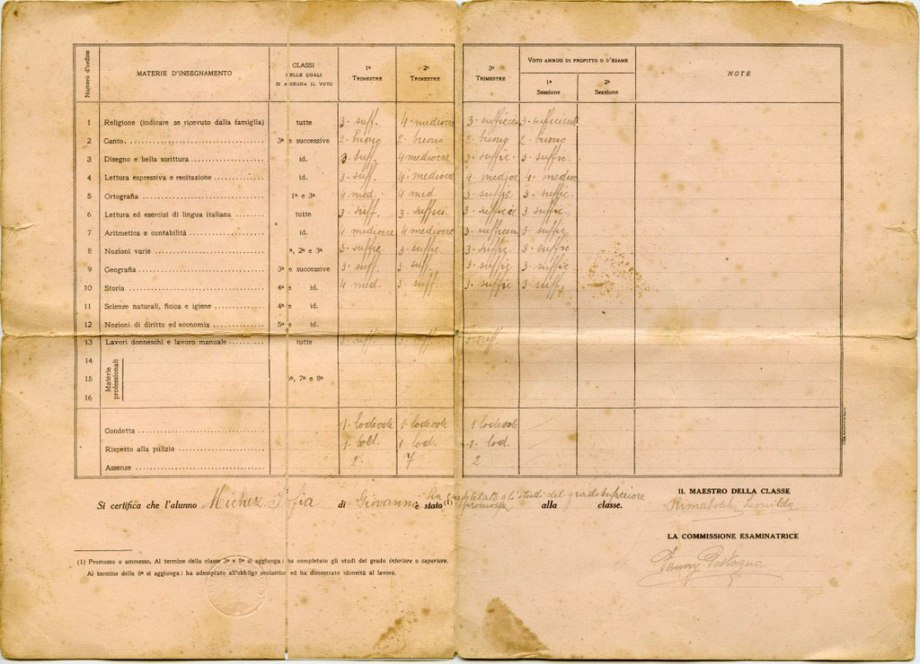 Numero d'ordine
MATERIE D'INSEGNAMENTO
CLASSI
DELLE QUALI
SI ASSEGNA IL VOTO
1º TRIMESTRE
2º TRIMESTRE
3º TRIMESTRE
VOTO ANNUO DI PROFITTO O D'ESAME
1ª Sessione
2ª Sessione
NOTE
1 Religione (indicare se ricevuto dalla famiglia) tutte 3 - suff. 4 - mediocre 3 - sufficien 3 - sufficient
2 Canto 3ª e successive 2 - buono 2 - buono 2 - buono 2 - buono
3 Disegno e bella scrittura id. 3 - suff. 4 mediocre 3 - suffic 3 - suffic.
4 Lettura espressiva e recitazione id. 3 - suff. 4 - mediocre 4 - medioc 4 - medioc
5 Ortografia 1ª e 3ª 4 med. 4 med. 3 - suffic 3 - suffic
6 Lettura ed esercizi di lingua italiana tutte 3 - suff. 3 - suffici 3 - suffici 3 suffic.
7 Aritmetica e contabilità id. 4 mediocre 4 mediocre 3 - sufficien 3 - suffic.
8 Nozioni varie ª, 2ª e 3ª 3 - suffic 3 - suffic. 3 - suffic. 3 - suffic
9 Geografia 3ª e successive 3 - suff. 3 suff. 3 - suffic 3 - suffic.
10 Storia 4ª e id. 4 med. 3 - suff 3 - suffic 3 - suff.
11 Scienze naturali, fisica e igiene 4ª e id.
12 Nozioni di diritto ed economia 5ª e id.
13 Lavori donneschi e lavoro manuale tutte 3 - suff. 3 - suff 3 - suff.
14
15 Materie professionali ª, 7ª e 8ª
16
Condotta 1 - lodevole 1 - lodevole 1 lodevole
Rispetto alla pulizia 1 - lod. 1 lod. 1 - lod.
Assenze 2 7 2
Si certifica che l'alunno Sofia di Giovanni è stato(1) promossa alla classe.
gli studi del grado superiore
IL MAESTRO DELLA CLASSE
LA COMMISSIONE ESAMINATRICE
(1) Promosso o ammesso. Al termine della classe 3ª e 5ª si aggiunga: ha completato gli studi del grado inferiore o superiore.
Al termine della 5ª si aggiunga: ha adempiuto all'obbligo scolastico ed ha dimostrato idoneità al lavoro.